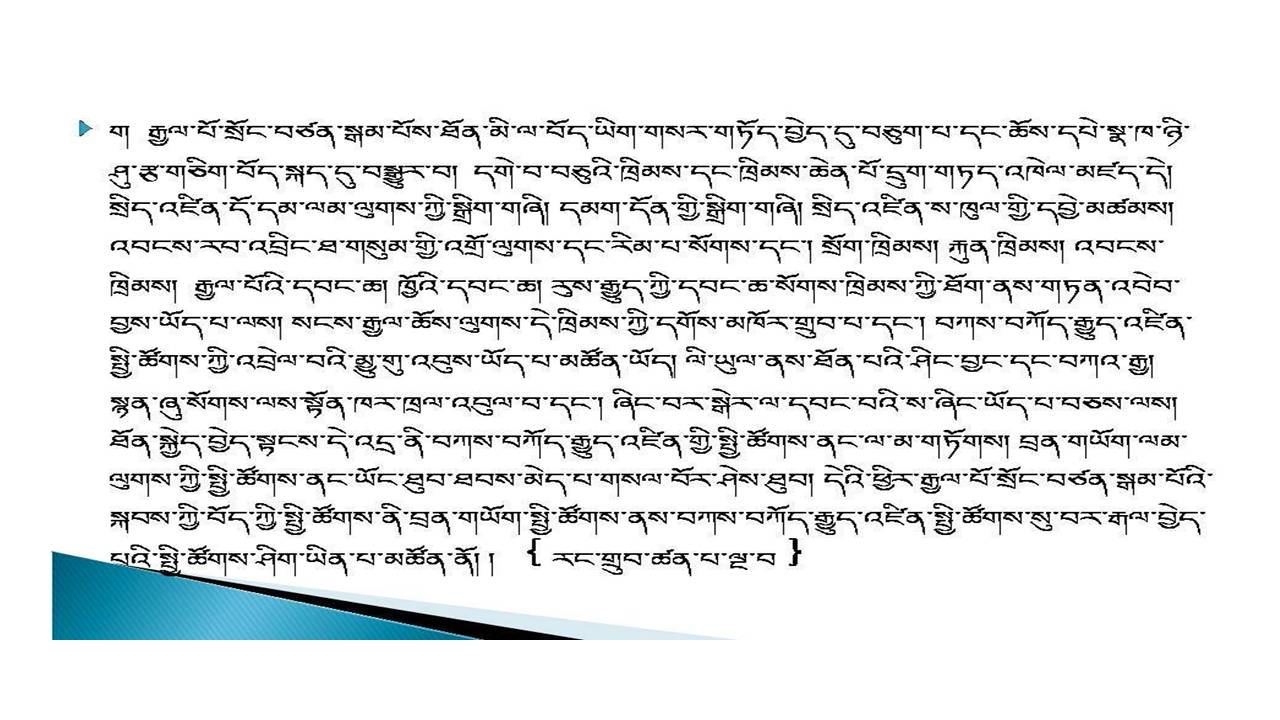 ག  རྒྱལ་པོ་སྲོང་བཙན་སྒམ་པོས་ཐོན་མི་ལ་བོད་ཡིག་གསར་གཏོད་བྱེད་དུ་བཅུག་པ་དང་ཆོས་དཔེ་སྣ་ཁ་ཉི་
ཤུ་རྩ་གཅིག་བོད་སྐད་དུ་བསྒྱུར་བ།  དགེ་བ་བཅུའི་ཁྲིམས་དང་ཁྲིམས་ཆེན་པོ་དྲུག་གཏད་འཁེལ་མཛད་དེ།
སྲིད་འཛིན་དོ་དམ་ལམ་ལུགས་ཀྱི་སྒྲིག་གཞི། དམག་དོན་གྱི་སྒྲིག་གཞི། སྲིད་འཛིན་ས་ཁུལ་གྱི་དབྱེ་མཚམས།
འབངས་རབ་འབྲིང་ཐ་གསུམ་གྱི་འགྲོ་ལུགས་དང་རིམ་པ་སོགས་དང་། སྲོག་ཁྲིམས། རྐུན་ཁྲིམས། འབངས་
ཁྲིམས།  རྒྱལ་པོའི་དབང་ཆ། ཁྱོའི་དབང་ཆ། རུས་རྒྱུད་ཀྱི་དབང་ཆ་སོགས་ཁྲིམས་ཀྱི་ཐོག་ནས་གཏན་འབེབ་
བྱས་ཡོད་པ་ལས། སངས་རྒྱལ་ཆོས་ལུགས་དེ་ཁྲིམས་ཀྱི་དགོས་མཁོར་གྲུབ་པ་དང་། བཀས་བཀོད་རྒྱུད་འཛིན་
སྤྱི་ཚོགས་ཀྱི་འབྲེལ་བའི་མྱུ་གུ་འབུས་ཡོད་པ་མཚོན་ཡོད། ལི་ཡུལ་ནས་ཐོན་པའི་ཤིང་བྱང་དང་བཀའ་རྒྱ།
སྙན་ཞུ་སོགས་ལས་སྟོན་ཁར་ཁྲལ་འབུལ་བ་དང་། ཞིང་བར་སྒེར་ལ་དབང་བའི་ས་ཞིང་ཡོད་པ་བཅས་ལས།
ཐོན་སྐྱེད་བྱེད་སྟངས་དེ་འདྲ་ནི་བཀས་བཀོད་རྒྱུད་འཛིན་གྱི་སྤྱི་ཚོགས་ནང་ལ་མ་གཏོགས། བྲན་གཡོག་ལམ་
ལུགས་ཀྱི་སྤྱི་ཚོགས་ནང་ཡོང་ཐུབ་ཐབས་མེད་པ་གསལ་བོར་ཤེས་ཐུབ། དེའི་ཕྱིར་རྒྱལ་པོ་སྲོང་བཙན་སྒམ་པོའི་
སྐབས་ཀྱི་བོད་ཀྱི་སྤྱི་ཚོགས་ནི་བྲན་གཡོག་སྤྱི་ཚོགས་ནས་བཀས་བཀོད་རྒྱུད་འཛིན་སྤྱི་ཚོགས་སུ་བར་རྒལ་བྱེད་
པའི་སྤྱི་ཚོགས་ཤིག་ཡིན་པ་མཚོན་ནོ། །   { རང་གྲུབ་ཚན་པ་ལྔ་བ }